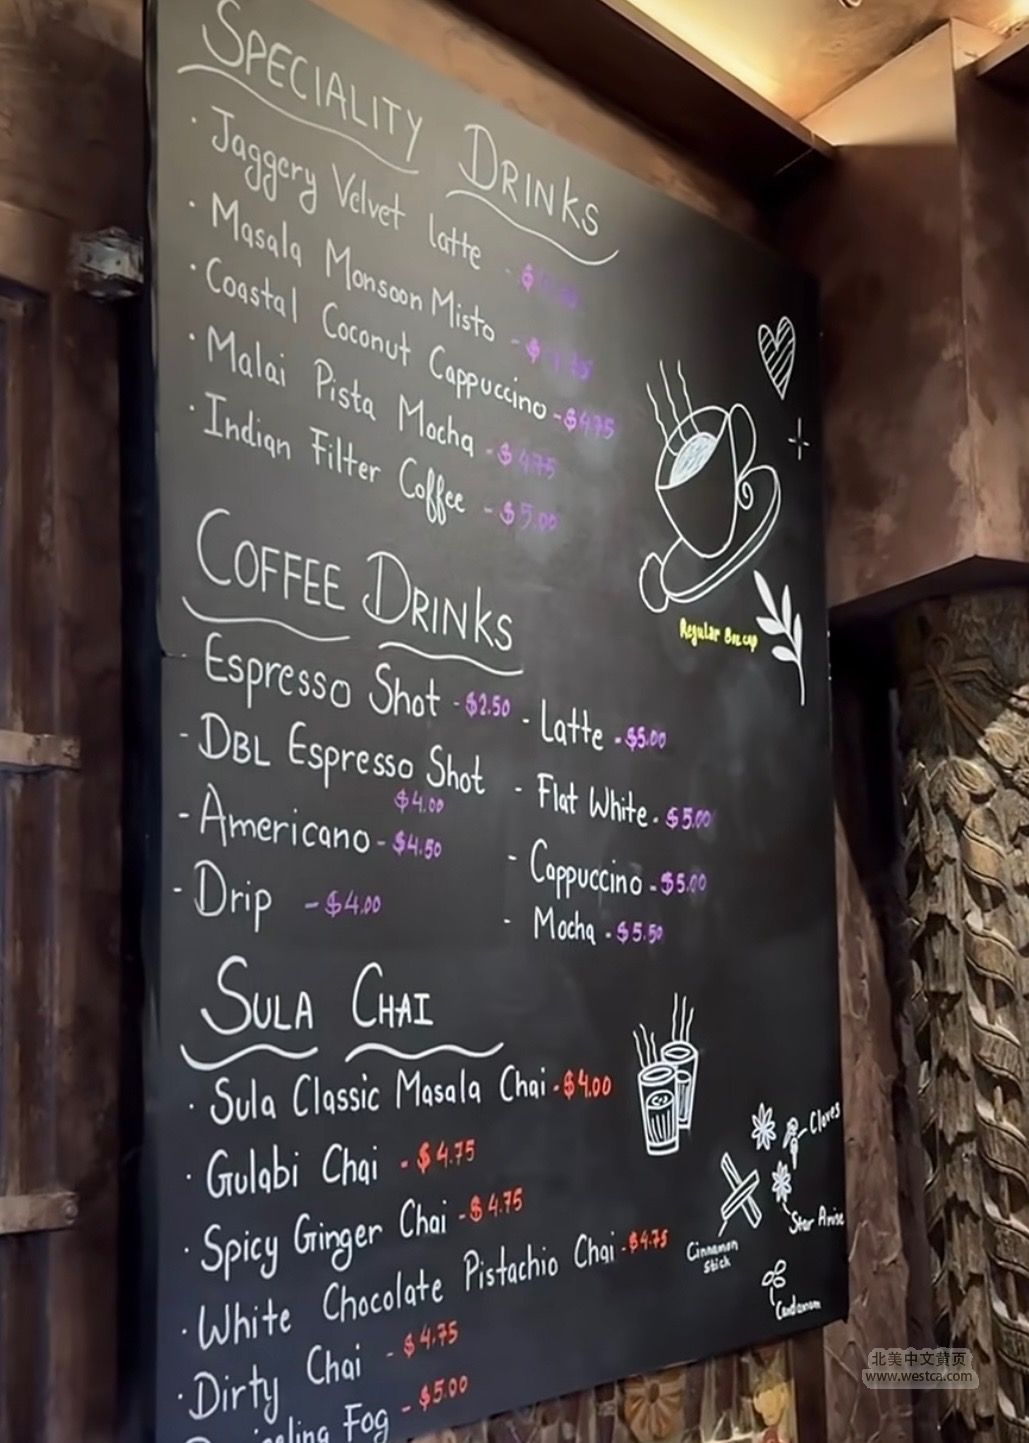 SPECIALITY DRINKS
· Jaggery Velvet latte - $
· Masala Monsoon Misto - $
· Coastal Coconut Cappuccino - $4.75
· Malai Pista Mocha - $4.75
· Indian Filter Coffee - $5.00
Regular 8oz cup
COFFEE DRINKS
Espresso Shot - $2.50
- DBL Espresso Shot
$4.00
- Americano - $4.50
- Drip - $4.00
- Latte - $5.00
- Flat White - $5.00
- Cappuccino - $5.00
- Mocha - $5.50
SULA CHAI
· Sula Classic Masala Chai - $4.00
· Gulabi Chai - $4.75
· Spicy Ginger Chai - $4.75
· White Chocolate Pistachio Chai - $4.75
· Dirty Chai - $4.75
Fog - $5.00
Cloves
Star Anise
Cinnamon
Stick
Cardamom
北美中文黄页
www.westca.com